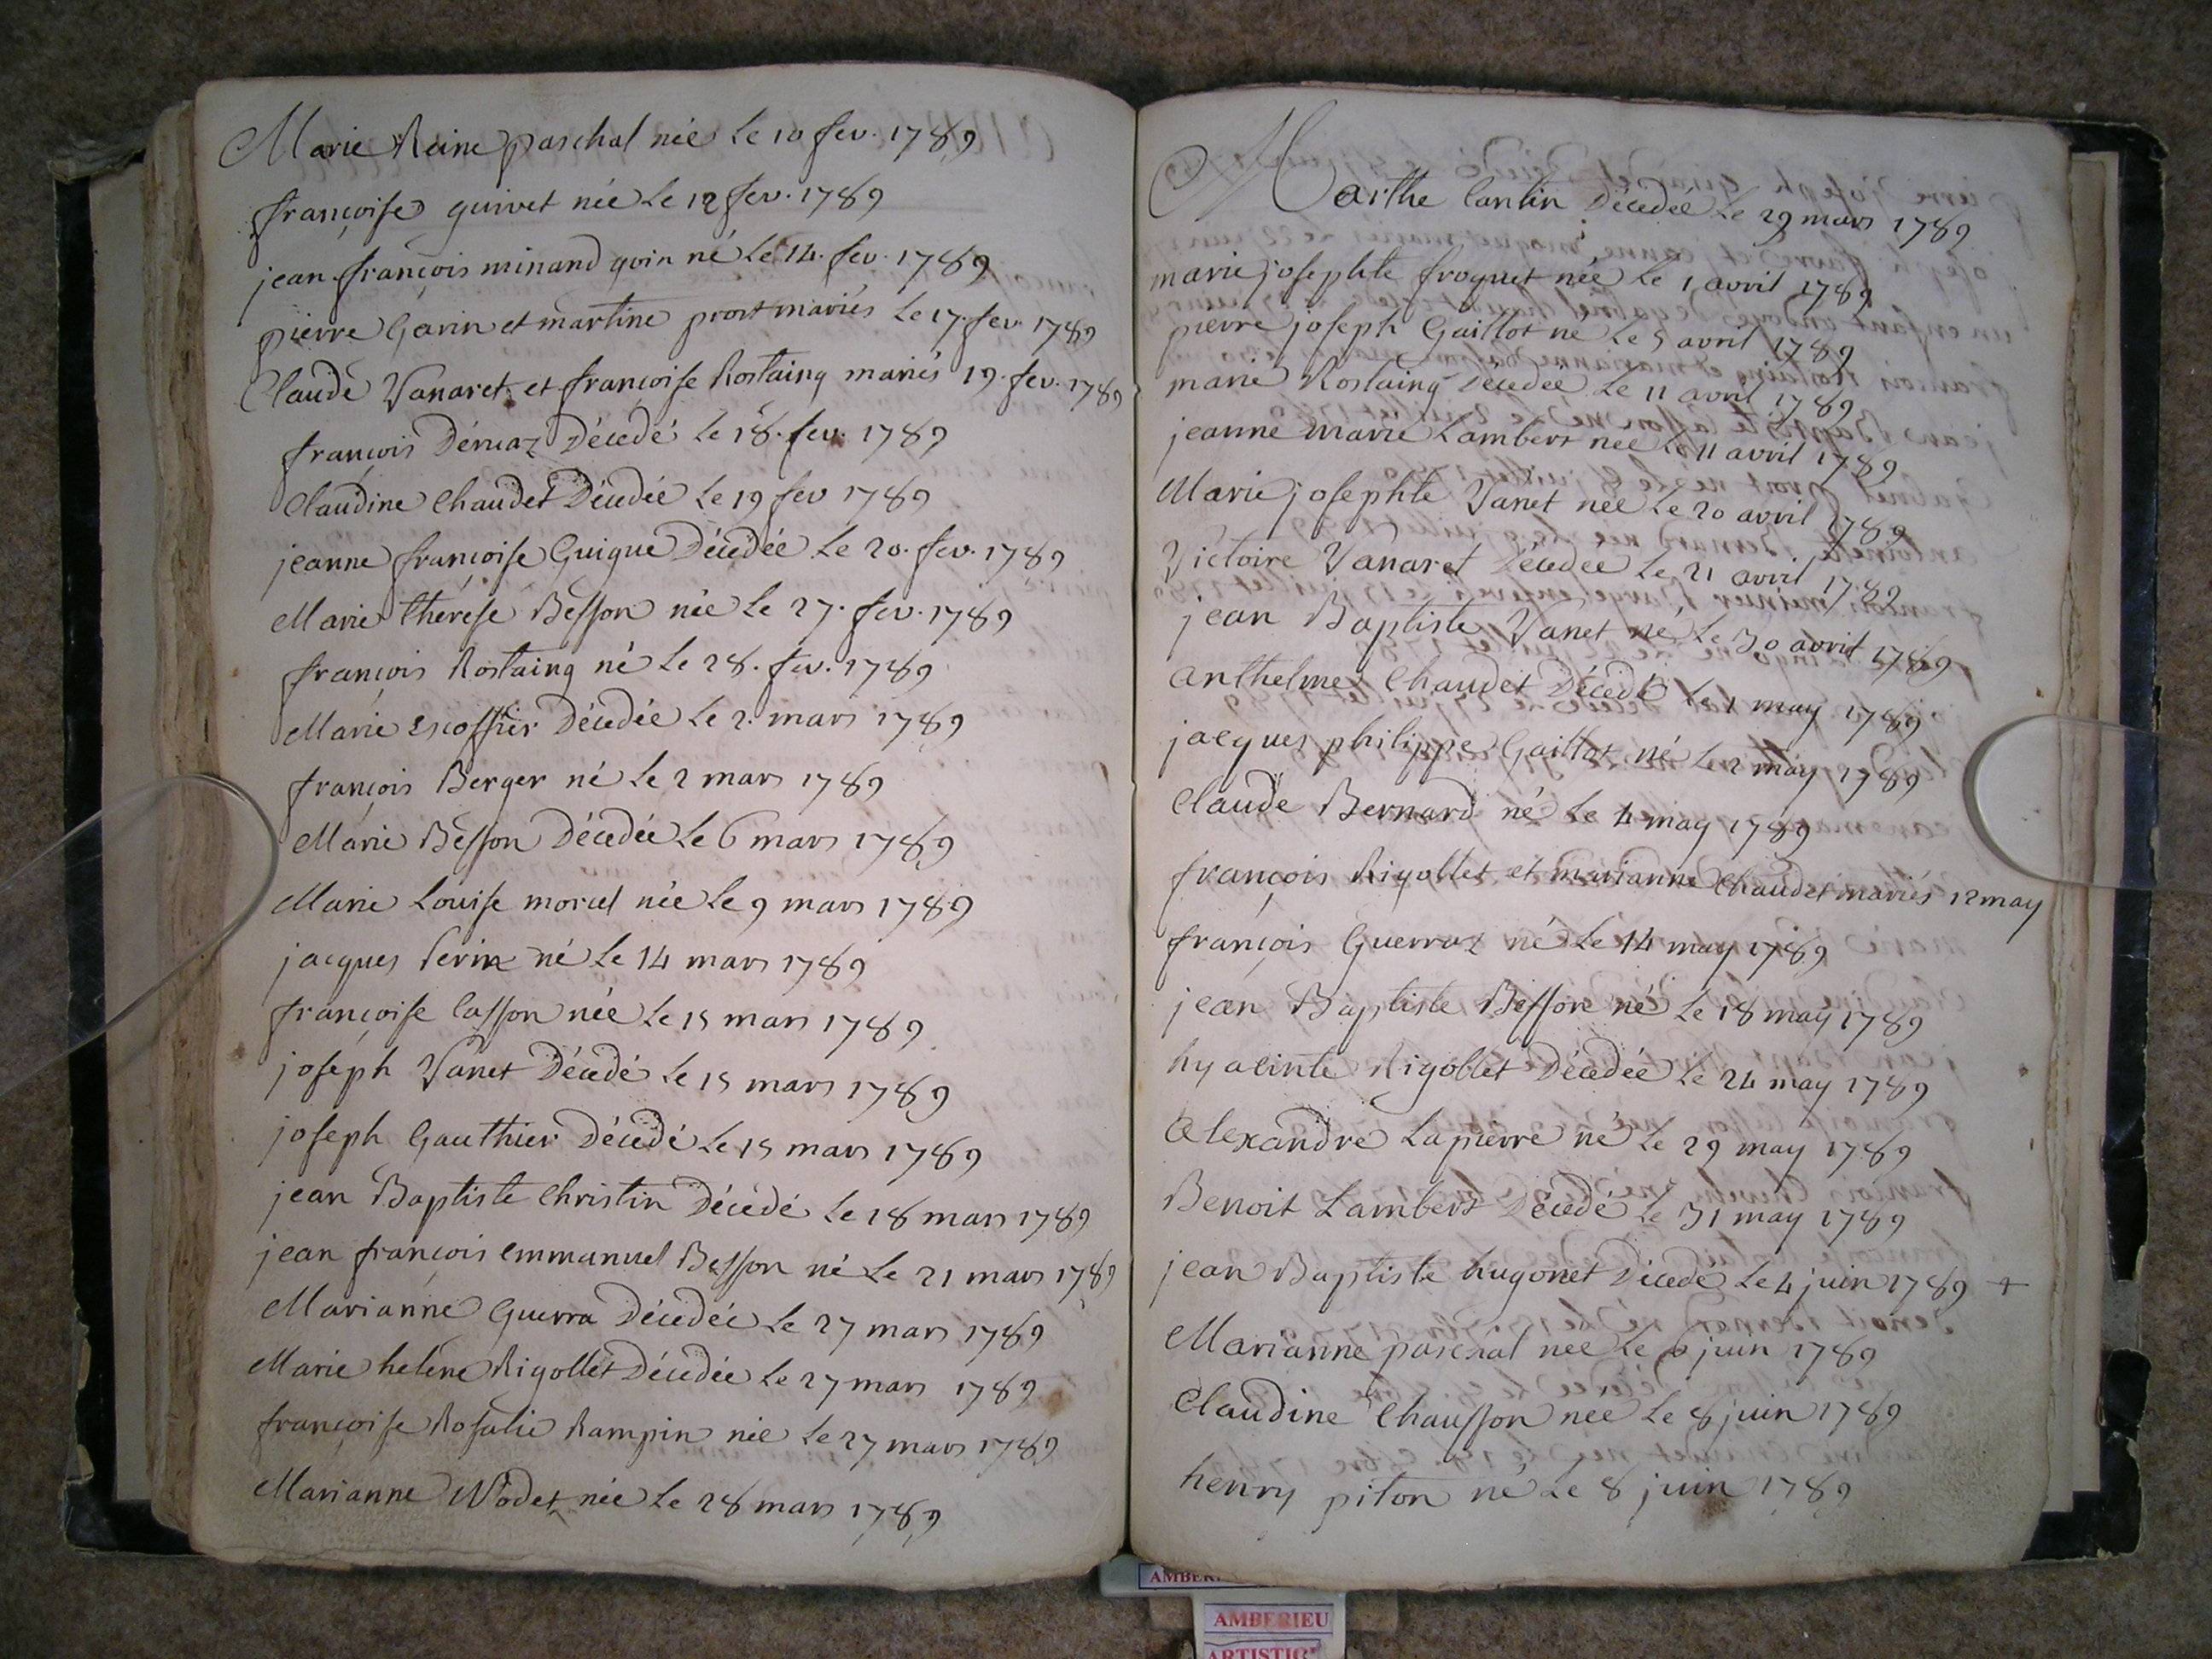 Marie Reine paschal née Le 10 fev. 1789
françoise guivet née Le 12 fev. 1789
jean françois minand goin né Le 14. fev. 1789
pierre Garin et martine prost mariés Le 17. fev. 1789
Claude Vanaret et françoise Rostaing mariés 19. fev. 1789
françois Déruaz Décedé Le 18. fev. 1789
Claudine Chaudet Décedée Le 19 fev 1789
jeanne françoise Guigue Décedée Le 20. fev. 1789
Marie thérese Besson née Le 27. fev. 1789
françois Rostaing né Le 28. fev. 1789
Marie Escoffier Décedée Le 2. mars 1789
françois Berger né Le 2 mars 1789
Marie Besson Décedée Le 6 mars 1789
Marie Louise morel née Le 9 mars 1789
jacques Perin né Le 14 mars 1789
françoise Casson née Le 15 mars 1789
joseph Vanet Décedé Le 15 mars 1789
joseph Gauthier Décedé Le 15 mars 1789
jean Baptiste Christin Décedé Le 18 mars 1789
jean françois emmanuel Besson né Le 21 mars 1789
Marianne Guerra Décedée Le 27 mars 1789
Marie helene Rigollet Décedée Le 27 mars 1789
françoise Rosalie Rampin née Le 27 mars 1789
Marianne Wodet née Le 28 mars 1789
Marthe Cantin Décedée Le 29 mars 1789
marie josephte froquet née Le 1 avril 1789
pierre joseph Gaillot né Le 5 avril 1789
marie Rostaing Décedée Le 11 avril 1789
jeanne marie Lambert née Le 11 avril 1789
Marie josephte Vanet née Le 20 avril 1789
Victoire Vanaret Décedée Le 21 avril 1789
jean Baptiste Vanet né Le 30 avril 1789
anthelme Chaudet Décedé Le 1 may 1789
jacques philippe Gaillot né Le 2 may 1789
Claude Bernard né Le 4 may 1789
françois Rigollet et marianne Chaudet mariés 12 may
françois Guerraz né Le 14 may 1789
jean Baptiste Besson né Le 18 may 1789
hyacinte Rigollet Décedée Le 24 may 1789
Alexandre Lapierre né Le 29 may 1789
Benoit Lambert Décedé Le 31 may 1789
jean Baptiste hugonet Décedé Le 4 juin 1789 +
Marianne paschal née Le 6 juin 1789
Claudine Chausson née Le 8 juin 1789
henry piton né Le 8 juin 1789
AMBERIEU